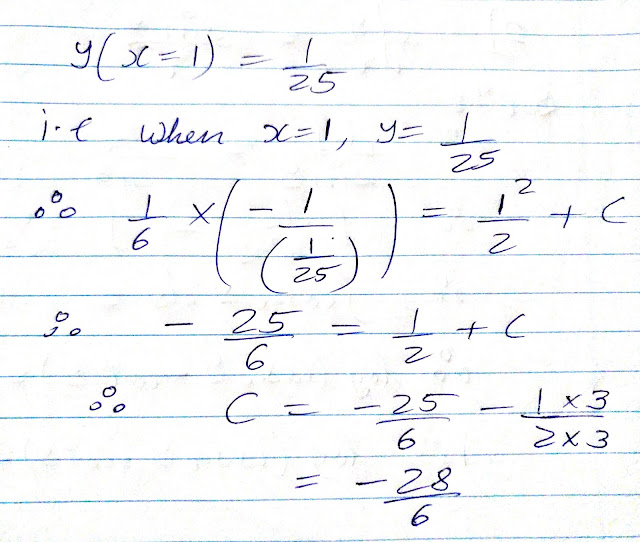 y(x=1) = 1/25
i.e when x=1, y= 1/25
∴ 1/6 × (- 1/(1/25)) = 1²/2 + C
∴ - 25/6 = 1/2 + C
∴ C = -25/6 - 1×3/2×3
= -28/6